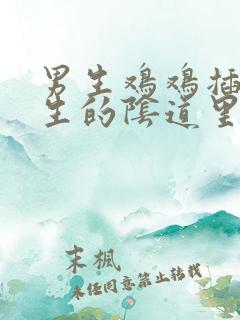 男生鸡鸡插
生的陰道里
末楓
未经同意禁止转载